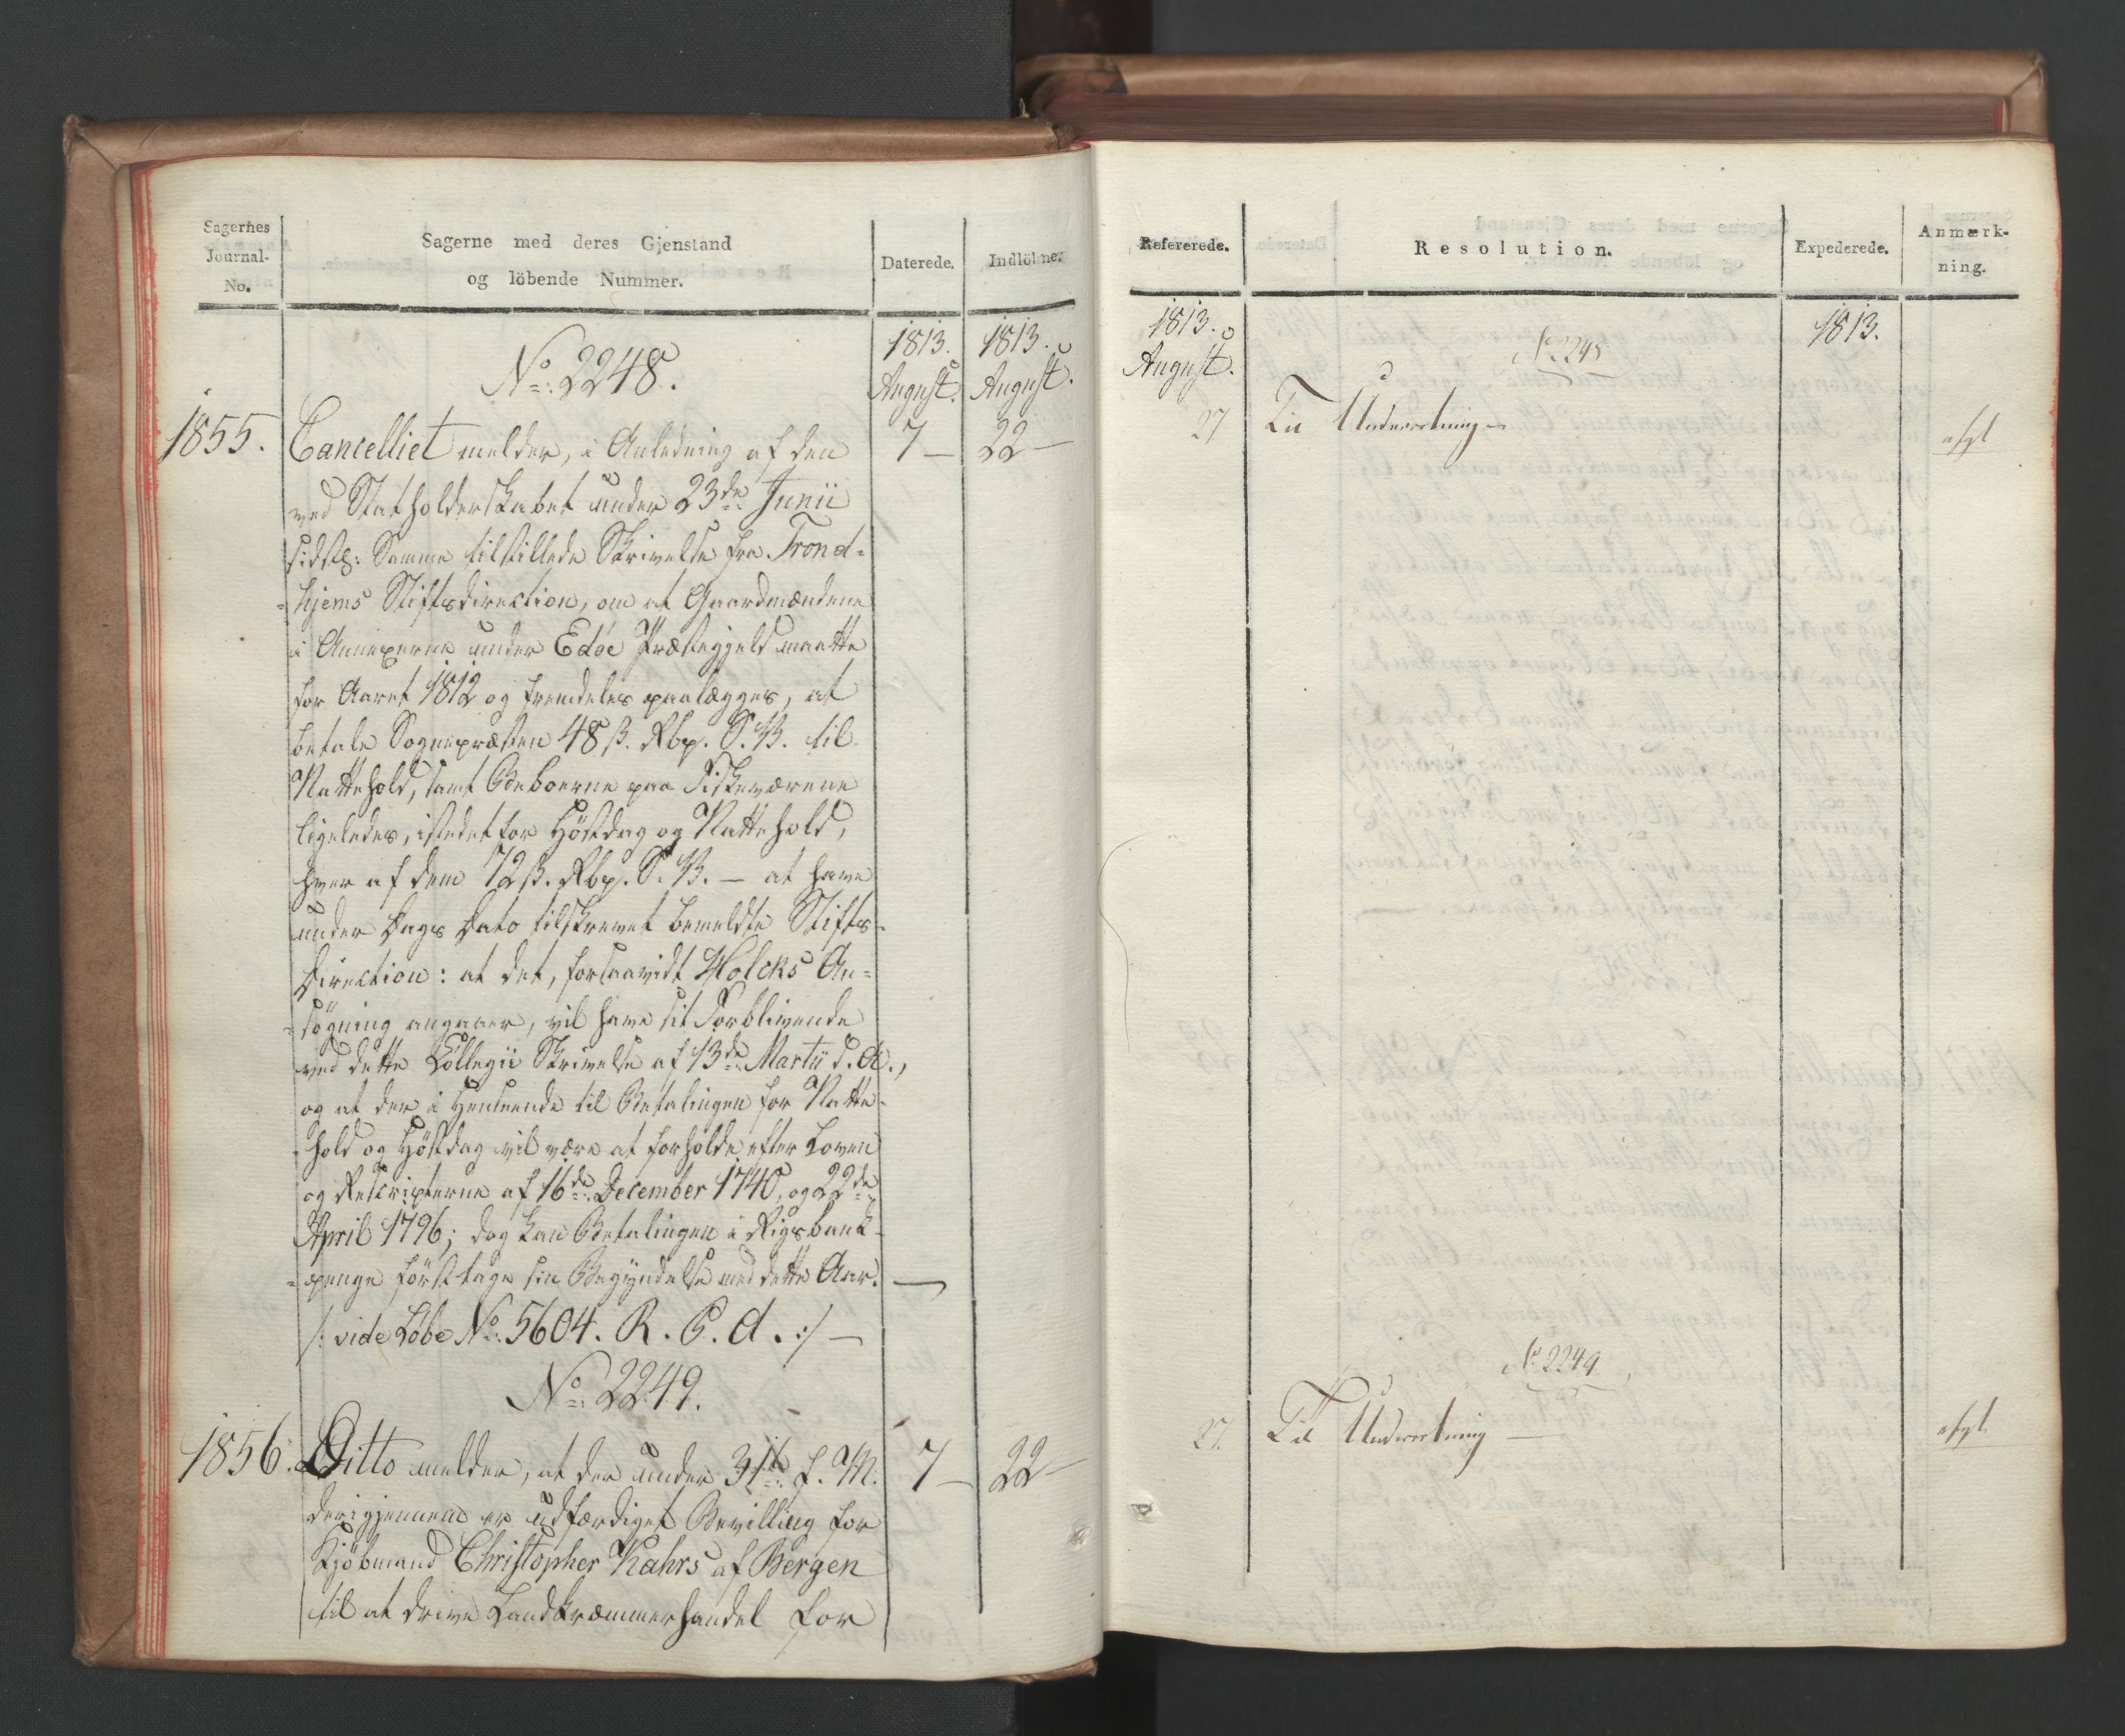 Sagernes Journal-No.
Sagerne med deres Gjenstand
og löbende Nummer.
Daterede.
Indlöbne.
No. 2248.
1813. August.
1813. August.
1855. Cancelliet melder, i Anledning af den 7 — 22 —
ved Statholderskabet under 23de Junii
sidstl: Samme tilstillede Skrivelse fra Trond-
hjems Stiftsdirection, om at Gaardmændene
i Annexerne under Edöe Præstegjeld maatte
for Aaret 1812 og fremdeles paalægges, at
betale Sognepræsten 48 ß. Rbp. S. V. til
Nattehold, samt Beboerne paa Fiskeværene
ligeledes, istedet for Höstdag og Nattehold,
hver af dem 72 ß. Rbp. S. V. — at have
under Dags Dato tilskrevet bemeldte Stifts-
Direction: at det, forsaavidt Holcks An-
=sögning angaaer, vil have sit Forblivende
ved dette Collegii Skrivelse af 13de Martii d. A.,
og at der i Henseende til Betalingen for Natte-
hold og Höstdag vil være at forholde efter Loven
og Rescripterne af 16de December 1740, og 22de
April 1796; dog kan Betalingen i Rigsbank-
=penge först tage sin Begyndelse med dette Aar. —
/: vide Löbe No. 5604. R. C. d. :/ —
No. 2249.
1856. Ditto melder, at der under 31te f. M. 7 — 22 —
derigjennem er udfærdiget Bevilling for
Kjöbmand Christopher Kahrs af Bergen
til at drive Landkræmmerhandel for
Refererede.
Resolution.
Expederede.
Anmærk-
ning.
1813. August.
1813.
No 2248
27 Til Underretning — afgl
No 2249
27. Til Underretning — afgl.